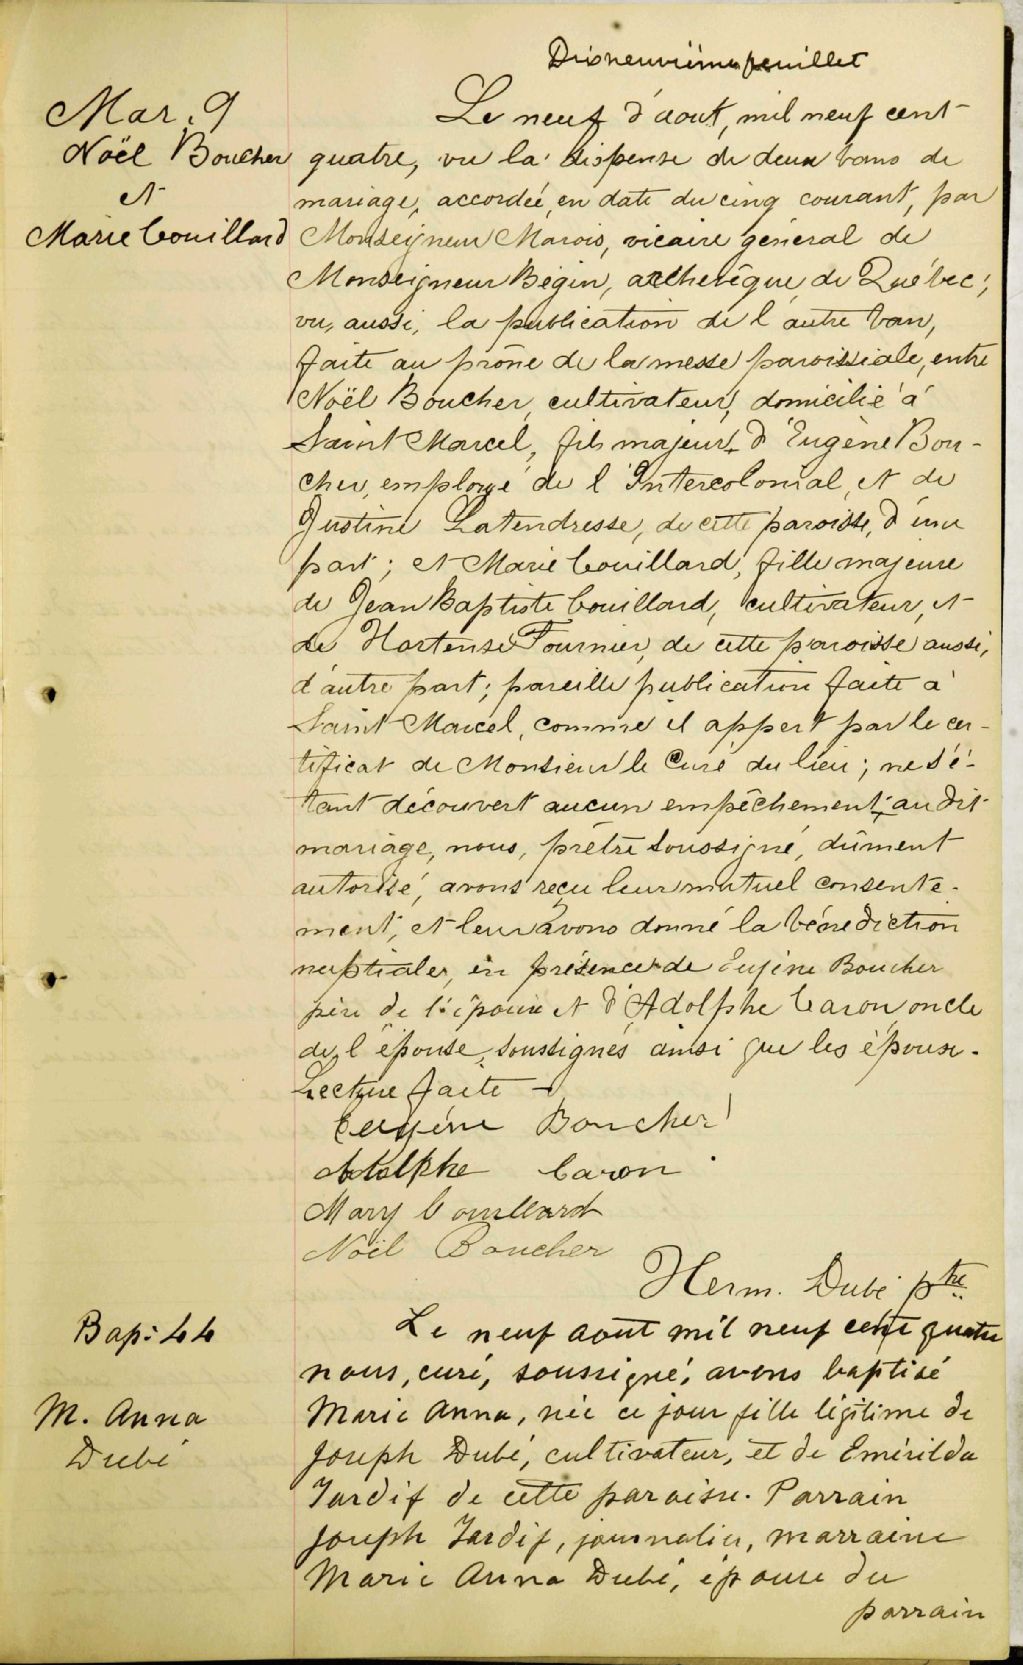 Dixneuvième feuillet
Mar. 9
Noël Boucher
et
Marie Couillard
Le neuf d'aout, mil neuf cent
quatre, vu la dispense de deux bans de
mariage, accordée, en date du cinq courant, par
Monseigneur Marois, vicaire général de
Monseigneur Bégin, archevêque de Québec;
vu, aussi, la publication de l'autre ban,
faite au prône de la messe paroissiale, entre
Noël Boucher, cultivateur, domicilié à
Saint Marcel, fils majeur d'Eugène Bou-
cher, employé de l'Intercolonial, et de
Justine Latendresse, de cette paroisse, d'une
part; et Marie Couillard, fille majeure
de Jean Baptiste Couillard, cultivateur, et
de Hortense Fournier, de cette paroisse aussi,
d'autre part; pareille publication faite à
Saint Marcel, comme il appert par le cer-
tificat de Monsieur le Curé du lieu; ne s'é-
tant découvert aucun empêchement au dit
mariage, nous, prêtre soussigné, dûment
autorisé, avons reçu leur mutuel consente-
ment, et leur avons donné la bénédiction
nuptiale, en présence de Eugène Boucher
père de l'époux et d'Adolphe Caron, oncle
de l'épouse, soussignés ainsi que les époux.
Lecture faite -
Eugène Boucher
Adolphe Caron
Mary Couillard
Noël Boucher
Herm. Dubé ptre
Bap: 44
M. Anna
Dubé
Le neuf aout mil neuf cent quatre
nous, curé, soussigné, avons baptisé
Marie Anna, née ce jour fille légitime de
Joseph Dubé, cultivateur, et de Emérilda
Tardif de cette paroisse. Parrain
Joseph Tardif, journalier, marraine
Marie Anna Dubé, épouse du
parrain